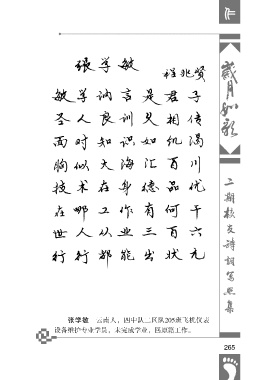 作
岁月如歌
二期校友诗词写照集
张学敏
程兆贤
敏学讷言是君子
圣人良训父相传
面对知识如饥渴
胸似大海汇百川
技术在身德品优
在哪工作有何干
世人从业三百六
行行都能出状元
张学敏　云南人，四中队二区队205班飞机仪表
设备维护专业学员，未完成学业，医原籍工作。
265